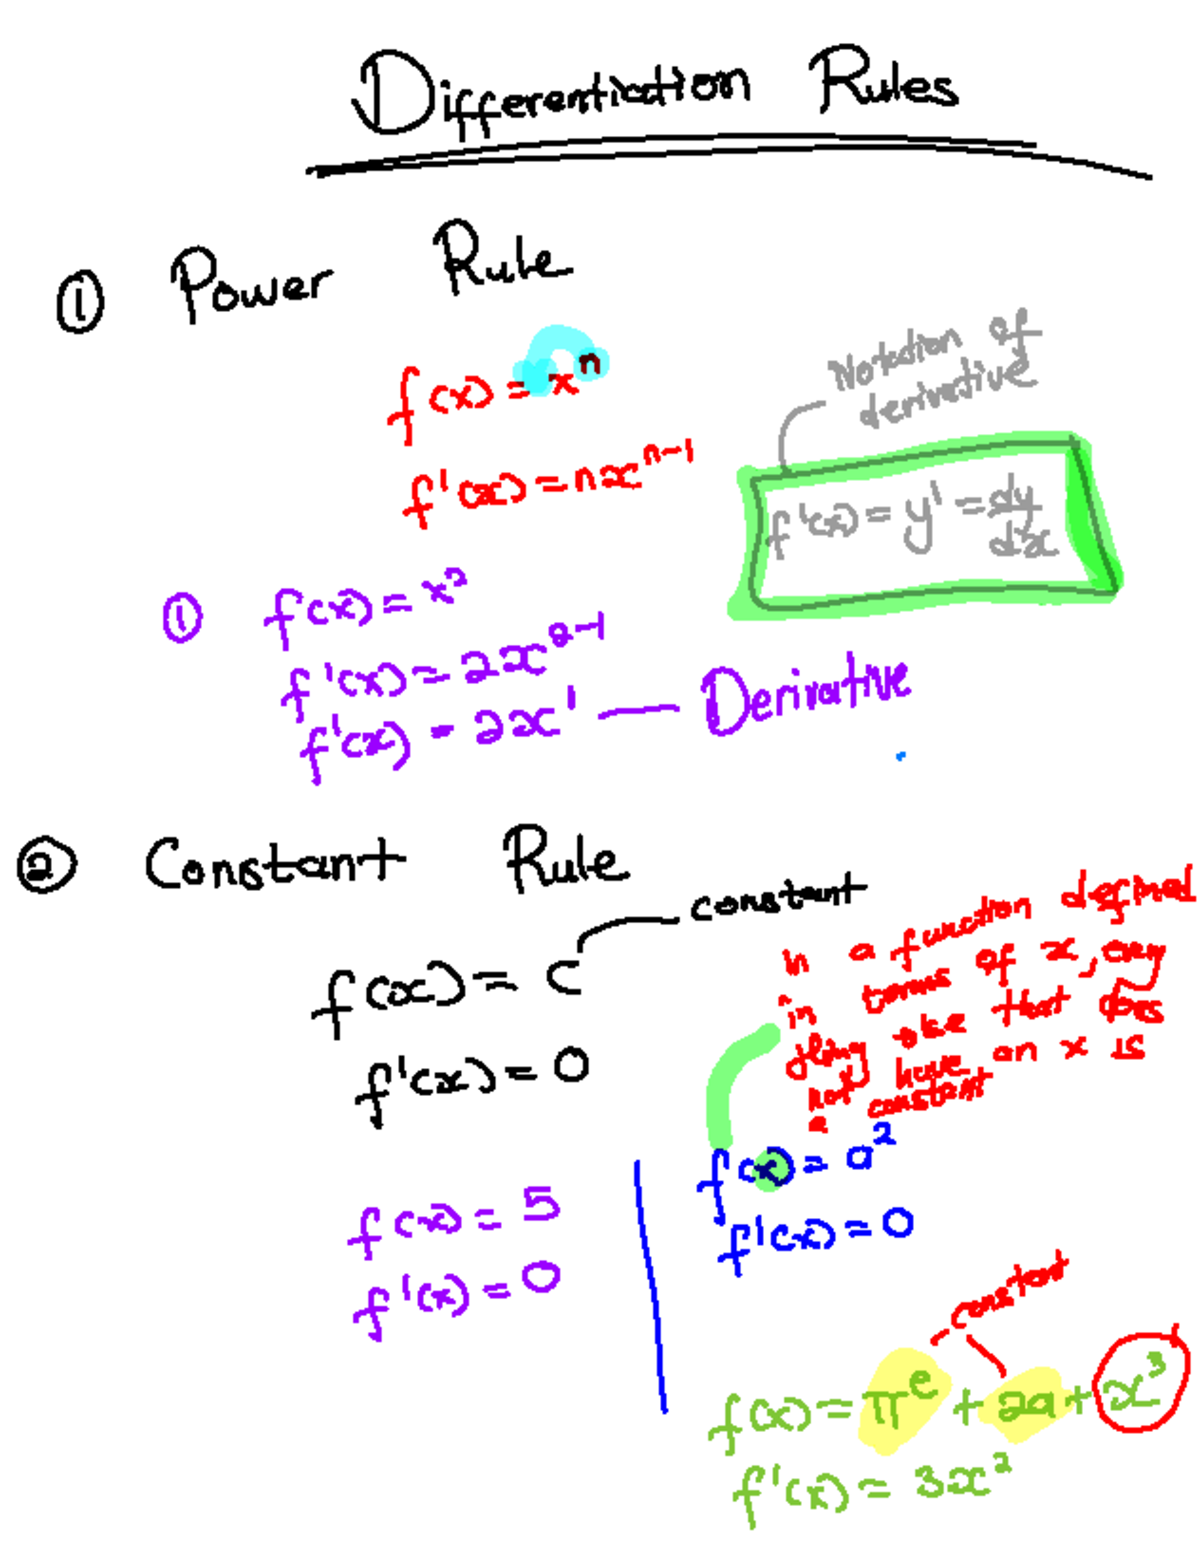 Differentiation Rules
① Power Rule
f(x) = xⁿ
f'(x) = nxⁿ⁻¹
Notation of
derivative
f'(x) = y' = dy/dx
① f(x) = x²
f'(x) = 2x²⁻¹
f'(x) = 2x¹ — Derivative
② Constant Rule
constant
f(x) = c
f'(x) = 0
In a function defined
in terms of x, every
thing else that does
not have an x is
a constant
f(x) = 5
f'(x) = 0
f(x) = a²
f'(x) = 0
constant
f(x) = πᵉ + 2a + x³
f'(x) = 3x²